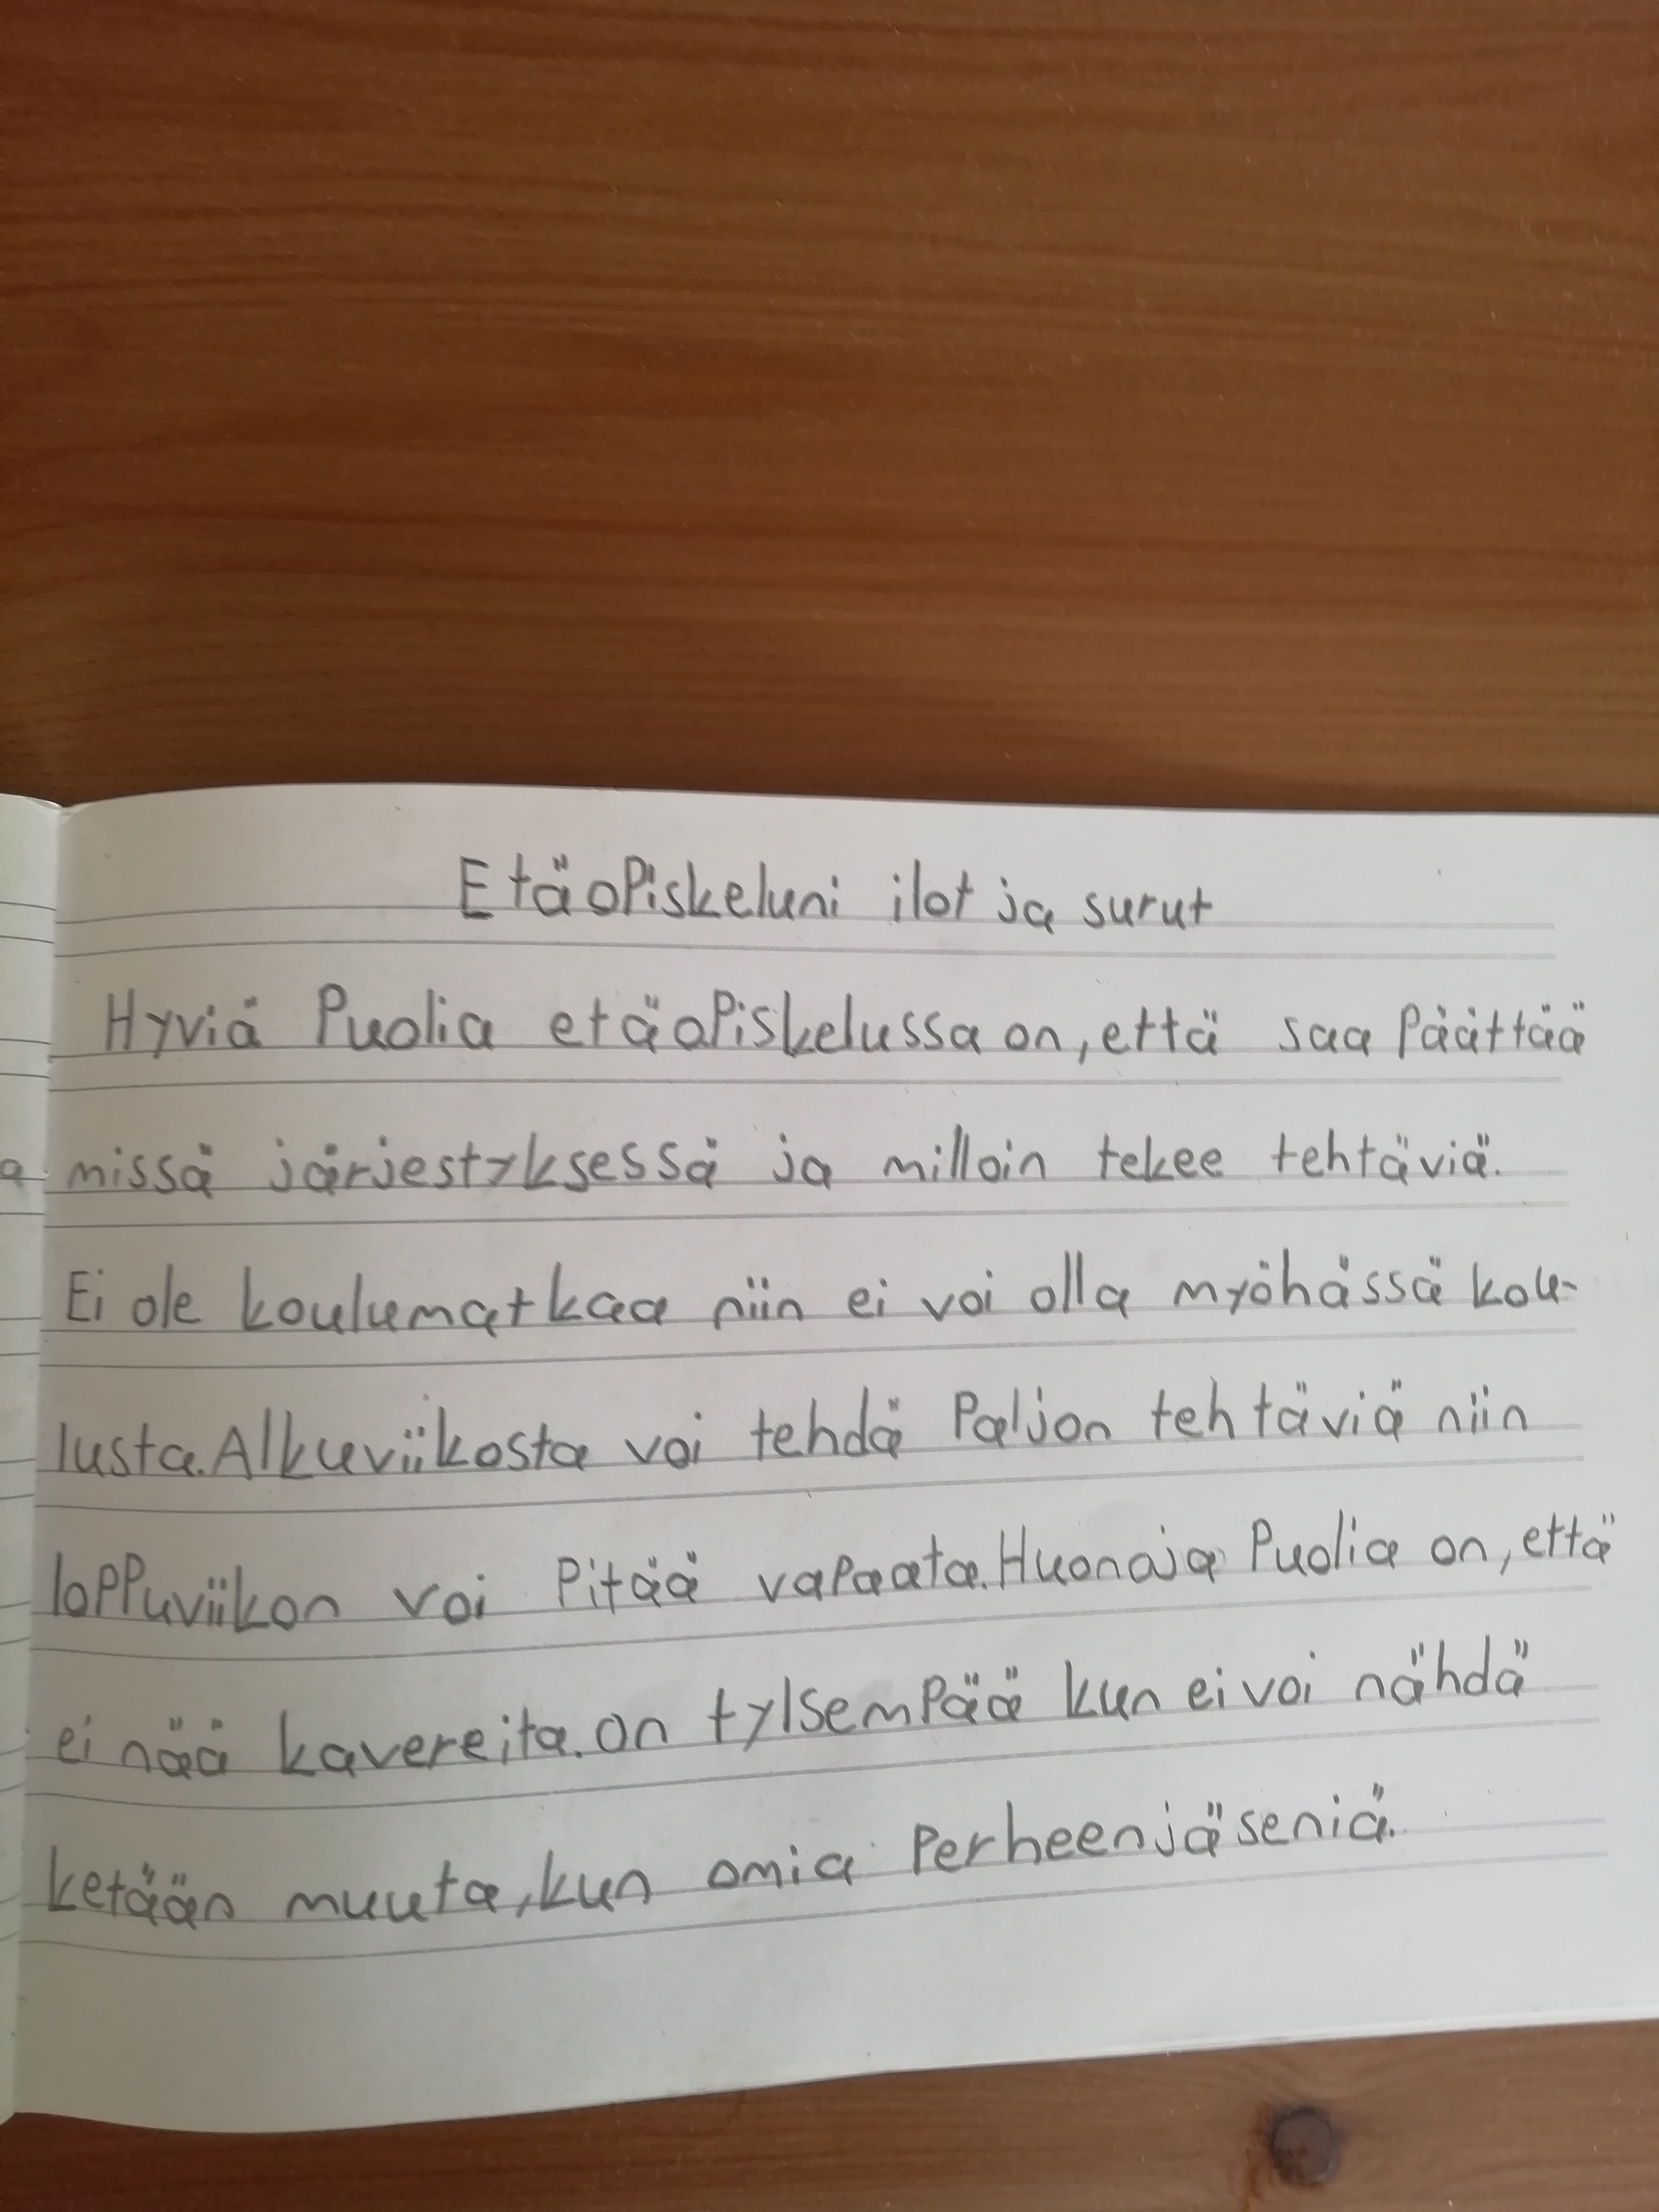 Etäopiskeluni ilot ja surut
Hyviä Puolia etäopiskelussa on, että saa Päättää
missä järjestyksessä ja milloin tekee tehtäviä.
Ei ole koulumatkaa niin ei voi olla myöhässä kou-
lusta. Alkuviikosta voi tehdä Paljon tehtäviä niin
loppuviikon voi Pitää vapaata. Huonoja Puolia on, että
ei nää kavereita. on tylsempää kun ei voi nähdä
ketään muuta, kun omia Perheenjäseniä.
a